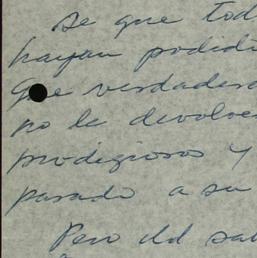 Se que tod
hayan podid
que verdader
no le devolve
prodigiosos y
pasado a su
Pero Ud sa